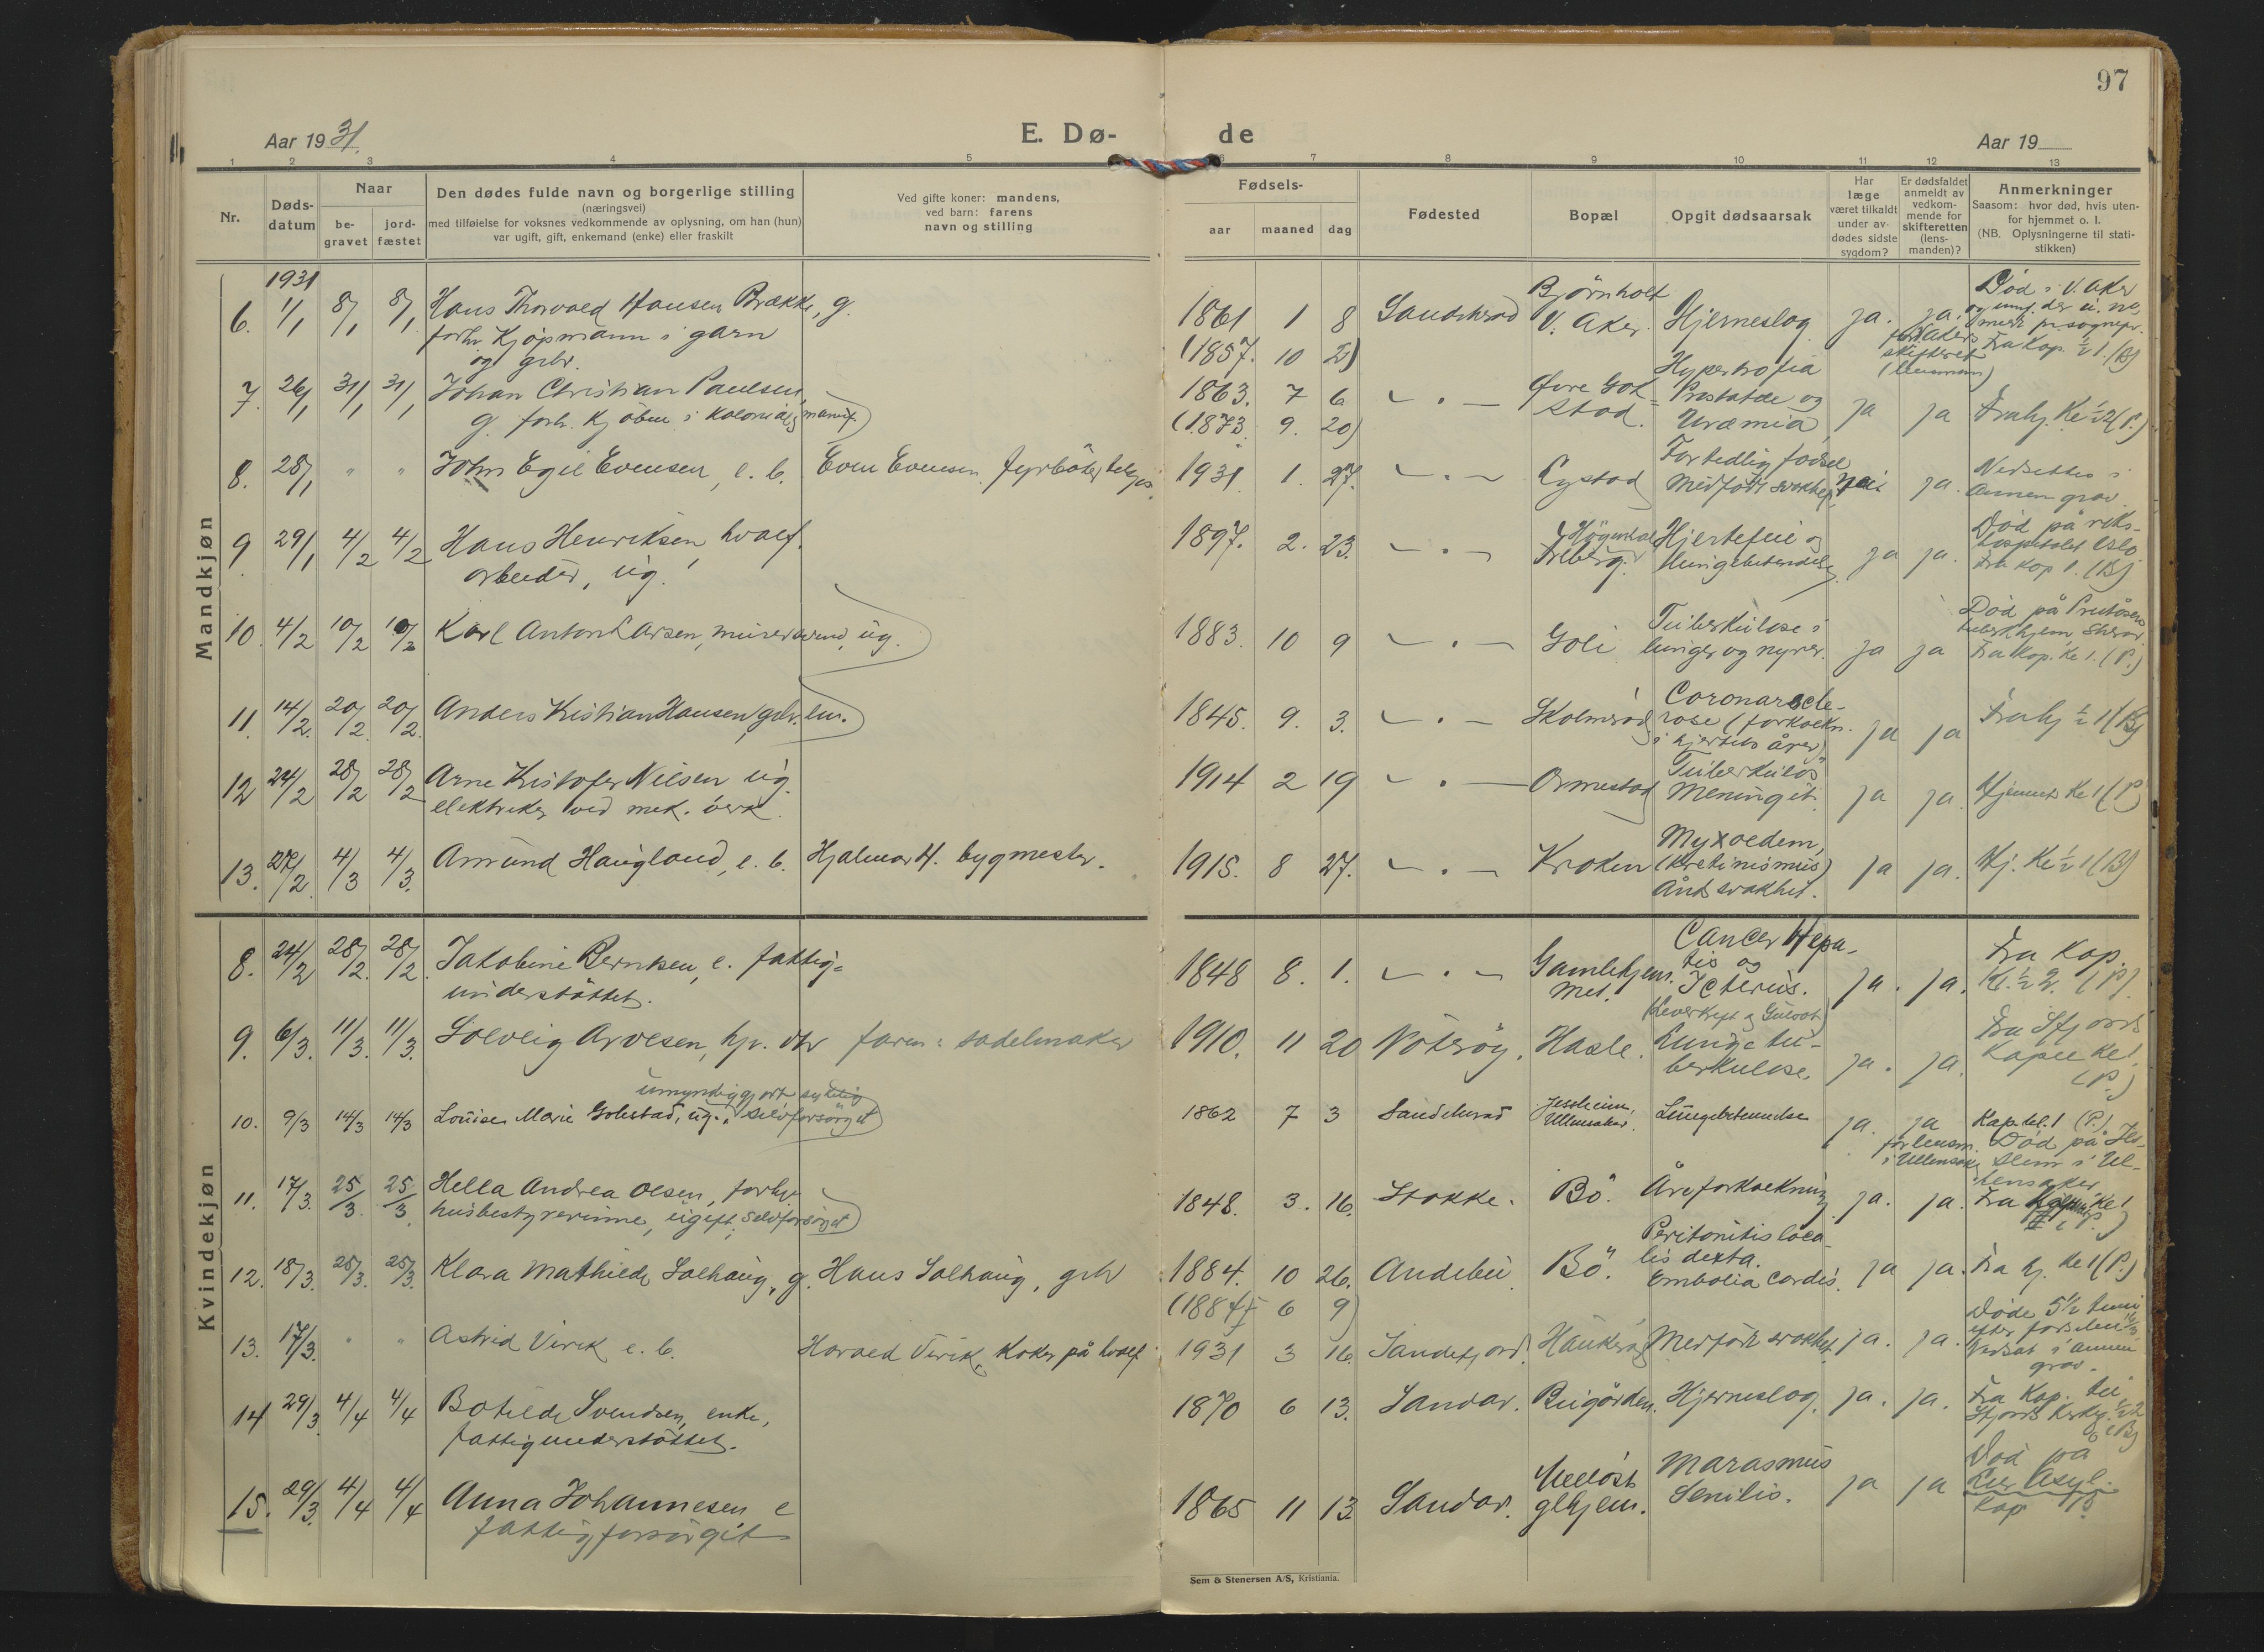 97
Aar 1931.
E. Dø-
de
Aar 19
1 2 3 4 5 6 7 8 9 10 11 12 13
Nr.
Døds-
datum
Naar
be-
gravet
jord-
fæstet
Den dødes fulde navn og borgerlige stilling
(næringsvei)
med tilføielse for voksnes vedkommende av oplysning, om han (hun)
var ugift, gift, enkemand (enke) eller fraskilt
Ved gifte koner: mandens,
ved barn: farens
navn og stilling
Fødsels-
aar maaned dag
Fødested
Bopæl
Opgit dødsaarsak
Har
læge
været tilkaldt
under av-
dødes sidste
sygdom?
Er dødsfaldet
anmeldt av
vedkom-
mende for
skifteretten
(lens-
manden)?
Anmerkninger
Saasom: hvor død, hvis uten-
for hjemmet o. l.
(NB. Oplysningerne til stati-
stikken)
Mandkjøn
1931
6. 1/1 8/1 8/1 Hans Thorvald Hansen Brække, g.
forh. Kjøpmann i garn
og grbr.
1861 1 8 Sandeherad Bjørnholt
V. Aker. Hjerneslag ja. ja.
Død i V. Aker
Fra Kap. ½ 1. (B)
(1857. 10 2)
7. 26/1 31/1 31/1 Johan Christian Paulsen,
g. forh. Kjøbm. i Kolonial & manuf.
1863. 7 6 — " — Øvre Gok-
stad. Hypertrofia
Prostatae og
Uræmia ja ja Fra hj. Kl ½2 (P.)
(1873 9. 20)
8. 28/1 " " John Egil Evensen, e. b. Even Evensen fyrbøter
1931 1. 27. — " — Nystad For tidlig fødsel
Medfødt svakhet nei ja. Nedsettes i
annen grav.
9. 29/1 4/2 4/2 Hans Henriksen, hvalf.
arbeider, ug.
1897. 2. 23. — " — Hjertefeil og
lungebetendelse ja ja.
Død på riks-
hospitalet Oslo
Fra Kap 1. (B)
10. 4/2 10/2 10/2 Karl Anton Larsen, murersvend, ug.
1883. 10 9 — " — Goli Tuberkulose i
lunger og nyrer. ja ja
Død på
Fra Kap. Kl 1. (P.)
11. 14/2. 20/2. 20/2. Anders Kristian Hansen, grbr. em.
1845. 9. 3. — " — Skolmrød Coronarscle-
rose (forkalkn.
i hjertets årer) ja ja Fra hj ½ 1 (B)
12 24/2 28/2 28/2 Arne Kristofer Nilsen ug.
elektriker ved mek. verk.
1914 2 19 — " — Ormestad Tuberkuløs
Meningit. ja ja. Hjemmet Kl 1 (P)
13. 27/2 4/3 4/3. Amund Haugland, e. b. Hjalmar H. bygmester.
1915. 8 27. — " — Kroken Myxoedem,
(kretinismus)
Åndssvakhet. ja ja. Hj. Kl ½ 1 (B)
Kvindekjøn
8. 24/2 28/2. 28/2. Jakobine Berntsen, e. fattig-
understøttet.
1848 8. 1. — " — Gamlehjem-
met. Cancer Hepa-
tis og
Icterus.
(Leverkreft og Gulsot)
ja. ja. Fra Kap.
Kl. ½ 2. (P).
9. 6/3. 11/3. 11/3. Solveig Arvesen, hjv. dtr faren: sadelmaker
1910. 11 20 Nøtrøy. Hasle. Lunge tu-
berkulose. ja. ja. Fra Sfjords
Kapel Kl 1
(P.)
10. 9/3 14/3 14/3 Louise Marie Gokstad, ug., selvforsørget
umyndiggjort
1862 7 3 Sandeherad Jessheim,
Ullensaker. Lungebetennelse ja. ja
for lensm.
i Ullensaker
Kap. kl. 1 (P.)
Død på Jes-
sheim i Ul-
lensaker
11. 17/3. 25/3. 25/3 Hella Andrea Olsen, forhv.
husbestyrerinne, ugift, selvforsørget
1848. 3. 16. Stokke. Bø. Åreforkalkning ja. ja. Fra Kl 1
12. 18/3. 25/3. 25/3. Klara Mathilde Solhaug, g. Hans Solhaug, grbr
1884. 10 26. Andebu Bø. Peritonitis loca-
lis dextra.
Embolia cordis. ja ja. Fra hj. Kl 1 (P.)
(1884 6 9)
13. 17/3. " " Astrid Virik e. b. Harald Virik, Kokk på hvalf.
1931 3 16. Sandefjord. Haukerød Medfødt svakhet. ja. ja.
Døde 5½ time
efter fødselen
Nedsat i annen
grav.
14 29/3 4/4 4/4 Botilde Svendsen, enke,
fattigunderstøttet.
1870 6 13. Sandar. Bugården. Hjerneslag. ja. ja. Fra Kap. til
Sfjords ½ 2
(B)
15. 29/3. 4/4 4/4 Anna Johannesen e
fattigforsørget
1865 11 13 Sandar. glhjem. Marasmus
Senilis. ja ja Død på
Asyl.
Kap
Sem & Stenersen A/S, Kristiania.